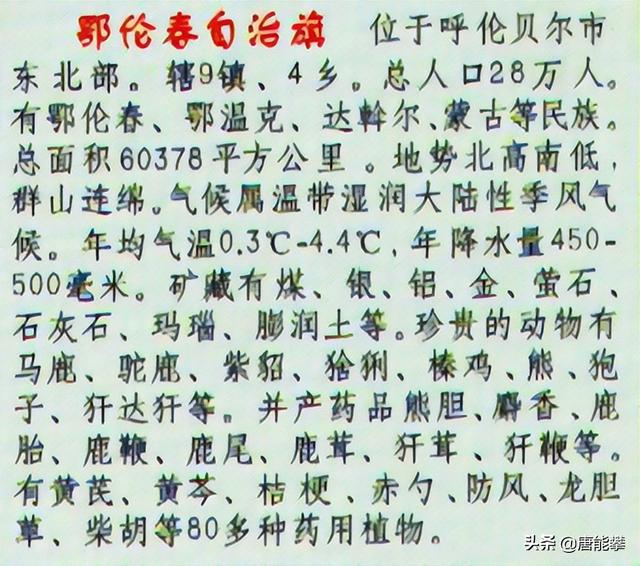 鄂伦春自治旗 位于呼伦贝尔市
东北部。辖9镇、4乡。总人口28万人。
有鄂伦春、鄂温克、达斡尔、蒙古等民族。
总面积60378平方公里。地势北高南低,
群山连绵。气候属温带湿润大陆性季风气
候。年均气温0.3℃-4.4℃,年降水量450-
500毫米。矿藏有煤、银、铝、金、萤石、
石灰石、玛瑙、膨润土等。珍贵的动物有
马鹿、驼鹿、紫貂、猞猁、榛鸡、熊、狍
子、犴达犴等。并产药品熊胆、麝香、鹿
胎、鹿鞭、鹿尾、鹿茸、犴茸、犴鞭等。
有黄芪、黄芩、桔梗、赤勺、防风、龙胆
草、柴胡等80多种药用植物。
头条 @唐能攀